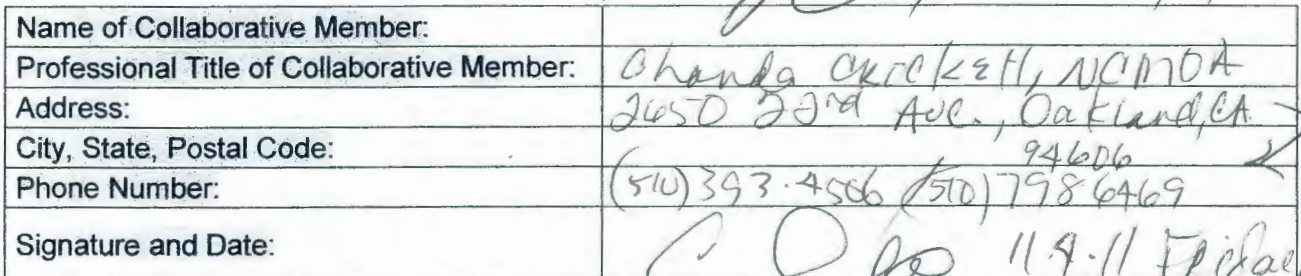 Name of Collaborative Member:
Professional Title of Collaborative Member: Chanda Crickett, NCMOA
Address: 2650 22nd Ave., Oakland, CA
City, State, Postal Code: 94606
Phone Number: (510) 393.4506 (510) 798 6469
Signature and Date: 11.4.11 Friday